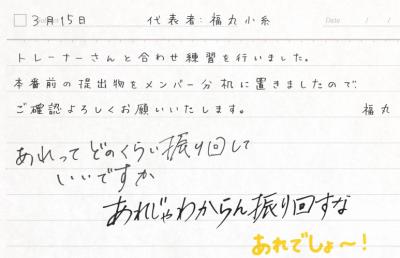 3月15日 代表者:福丸小糸 Date / /
トレーナーさんと合わせ練習を行いました。
本番前の提出物をメンバー分机に置きましたので、
ご確認よろしくお願いいたします。 福丸
あれってどのくらい振り回して
いいですか
あれじゃわからん振り回すな
あれでしょ〜!